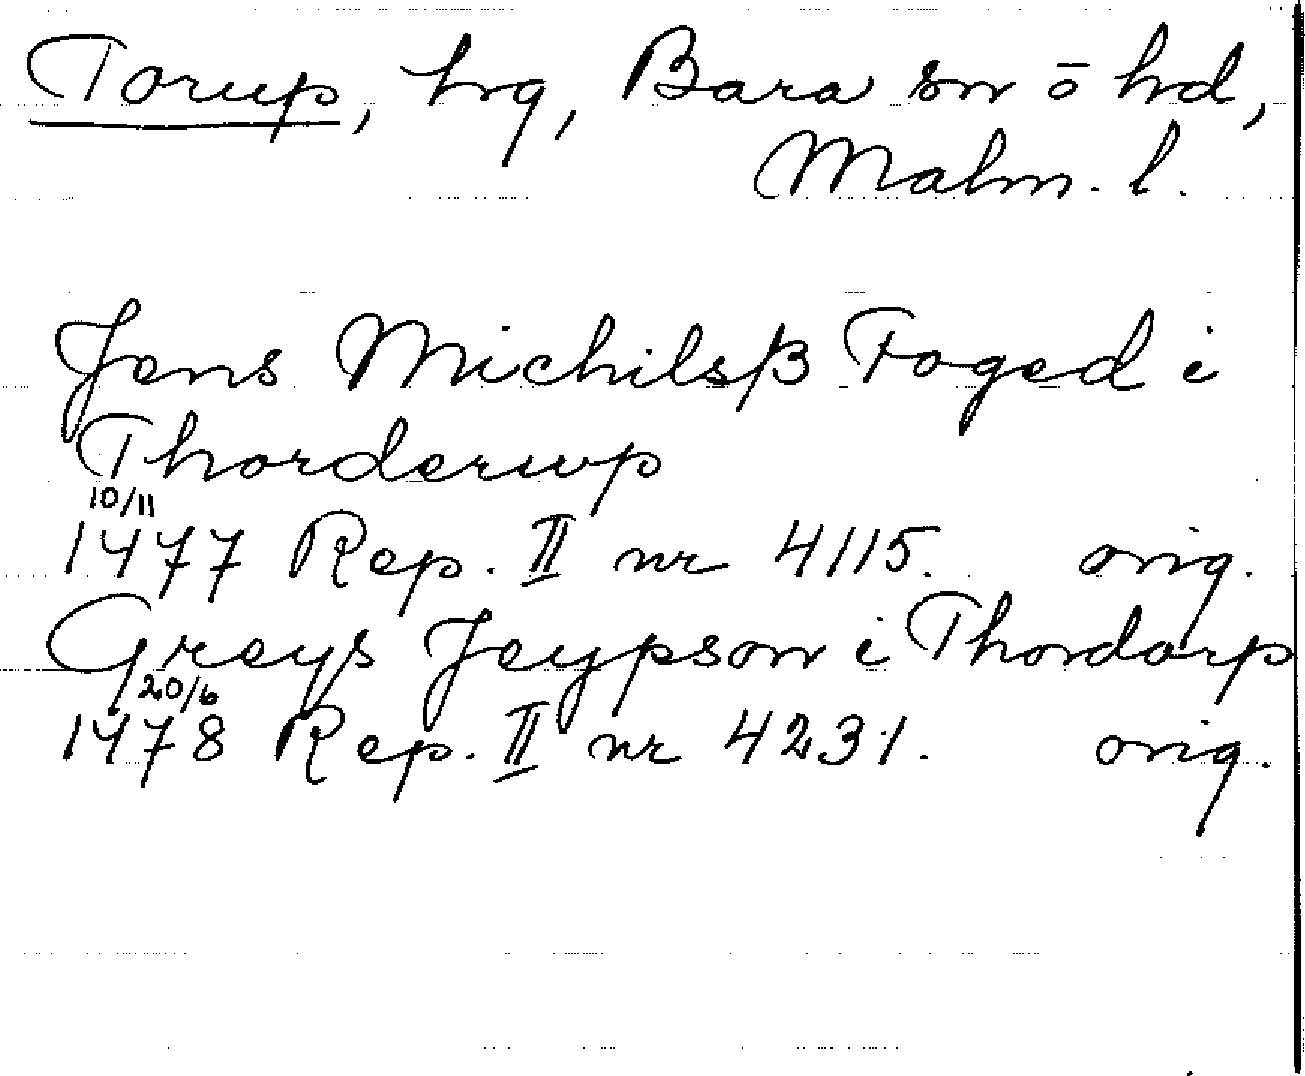 Torup, hrg, Bara sn o hd,
Malm. l.
Jens Michilsβ Foged i
Thorderwp
10/11
1477 Rep. II nr 4115. orig.
Greys Jeypson i Thordorp
20/6
1478 Rep. II nr 4231. orig.